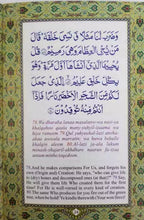 وَضَرَبَ لَنَا مَثَلًا وَّنَسِيَ خَلْقَهُ قَالَ
مَنْ يُّحْيِ الْعِظَامَ وَهِيَ رَمِيْمٌ قُلْ
يُحْيِيْهَا الَّذِيْٓ اَنْشَاَهَآ اَوَّلَ مَرَّةٍ وَهُوَ
بِكُلِّ خَلْقٍ عَلِيْمٌ الَّذِيْ جَعَلَ
لَكُمْ مِّنَ الشَّجَرِ الْاَخْضَرِ نَارًا فَاِذَآ
اَنْتُمْ مِّنْهُ تُوْقِدُوْنَ
78.Wa dharaba lanaa masalanw-wa nasi-ya
khalqahoo qaala many-yuhyil-'izaama wa
hiya rameem 79.Qul yuhyeehal-lazi ansha-
ahaaa awwala marrah; wa Huwa bikulli
khalqin aleem. 80.Al-lazi ja-ala lakum
minash-shajaril-akhdari naaran fa-izaa
antum minhu tooqidoon.
78.And he makes comparisons For Us, and forgets his
own Origin and Creation: He says, "who can give life
to (dry) bones and decomposed ones (at that)?" 79.Say,
"He will give them life Who created them for the first
time! For He is well-versed in every kind of creation.
80.The same Who produces for you fire out of the green
tree, when behold! Ye kindle therewith (your own fires)!